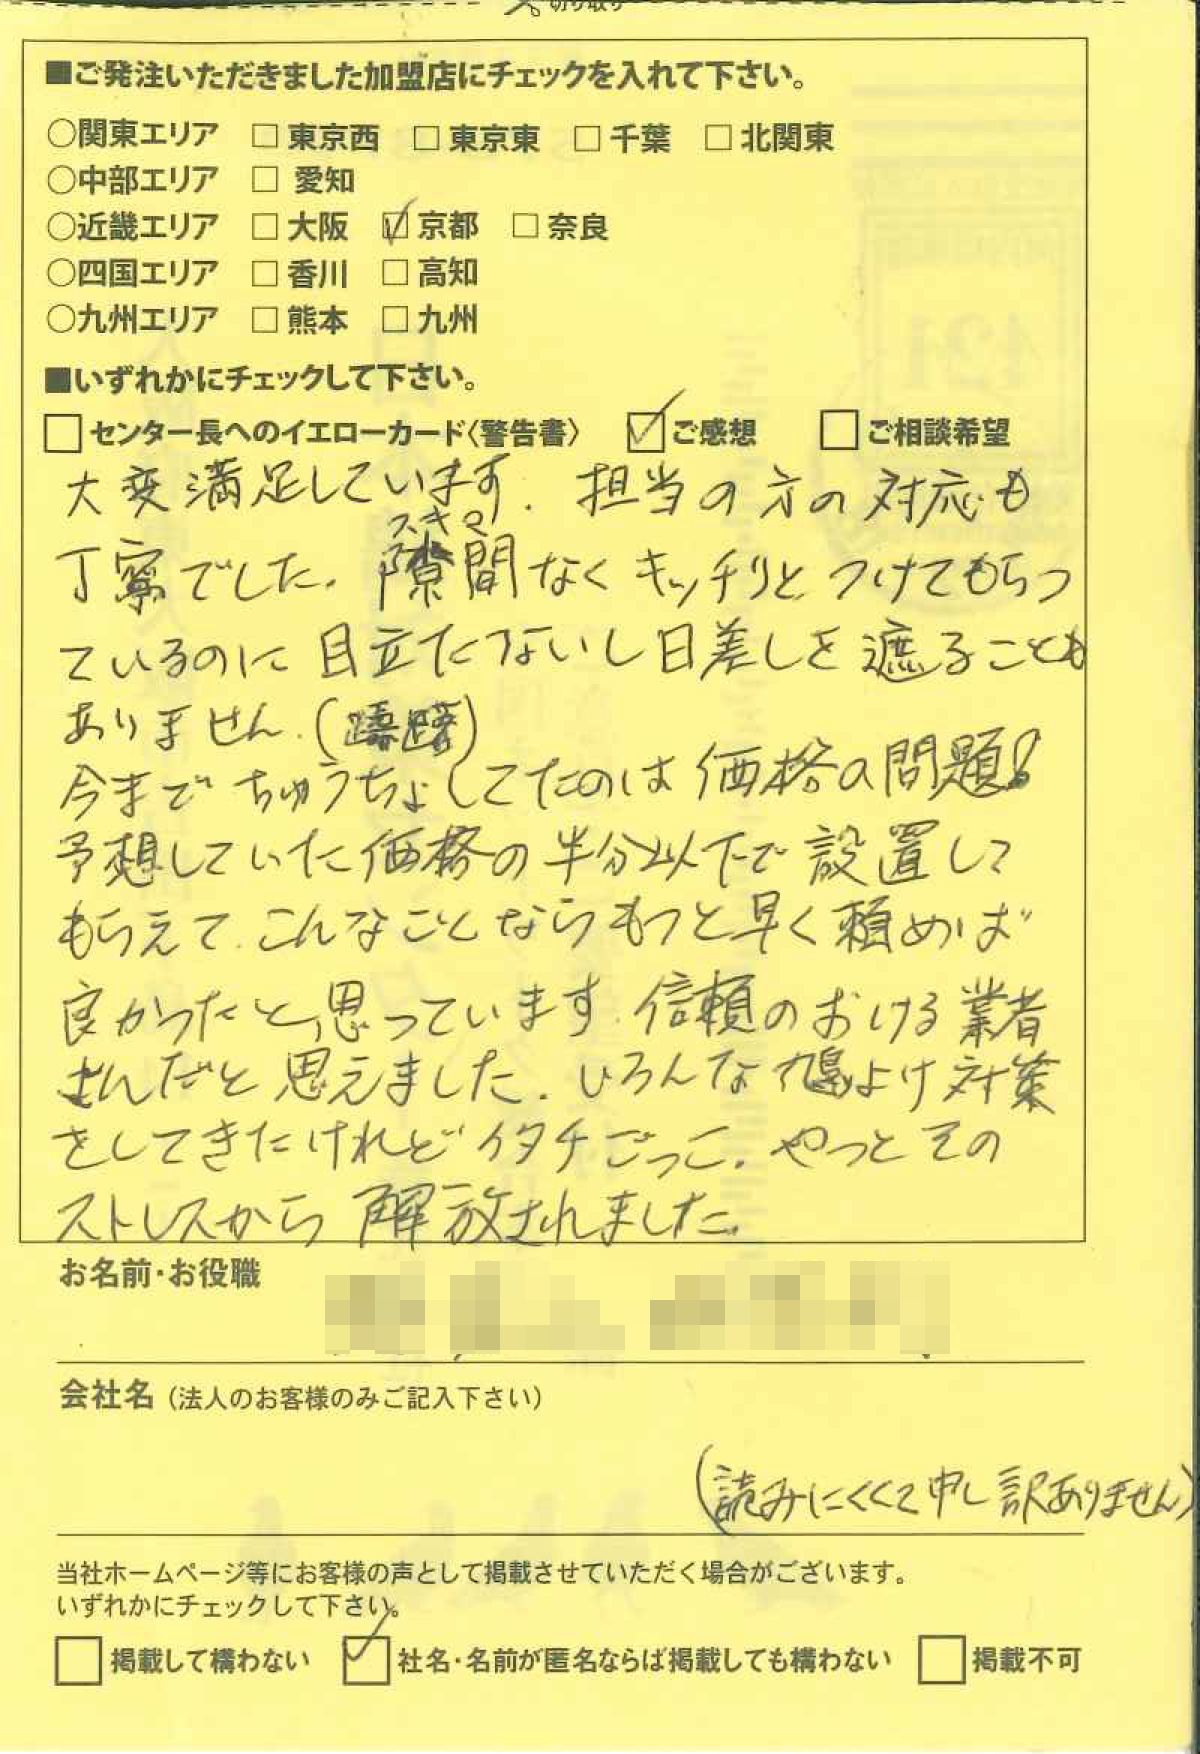 切り取り
■ご発注いただきました加盟店にチェックを入れて下さい。
○関東エリア □ 東京西 □ 東京東 □ 千葉 □ 北関東
○中部エリア □ 愛知
○近畿エリア □ 大阪 ☑ 京都 □ 奈良
○四国エリア □ 香川 □ 高知
○九州エリア □ 熊本 □ 九州
■いずれかにチェックして下さい。
□ センター長へのイエローカード〈警告書〉 ☑ ご感想 □ ご相談希望
大変満足しています. 担当の方の対応も
スキマ
丁寧でした. 隙間なくキッチリとつけてもらっ
ているのに目立たないし日差しを遮ることも
ありません. (躊躇)
今までちゅうちょしてたのは価格の問題!
予想していた価格の半分以下で設置して
もらえて. こんなことならもっと早く頼めば
良かったと思っています. 信頼のおける業者
さんだと思えました. いろんな鳩よけ対策
をしてきたけれどイタチごっこ. やっとその
ストレスから解放されました.
お名前・お役職
会社名（法人のお客様のみご記入下さい）
(読みにくくて申し訳ありません)
当社ホームページ等にお客様の声として掲載させていただく場合がございます。
いずれかにチェックして下さい。
□ 掲載して構わない ☑ 社名・名前が匿名ならば掲載しても構わない □ 掲載不可